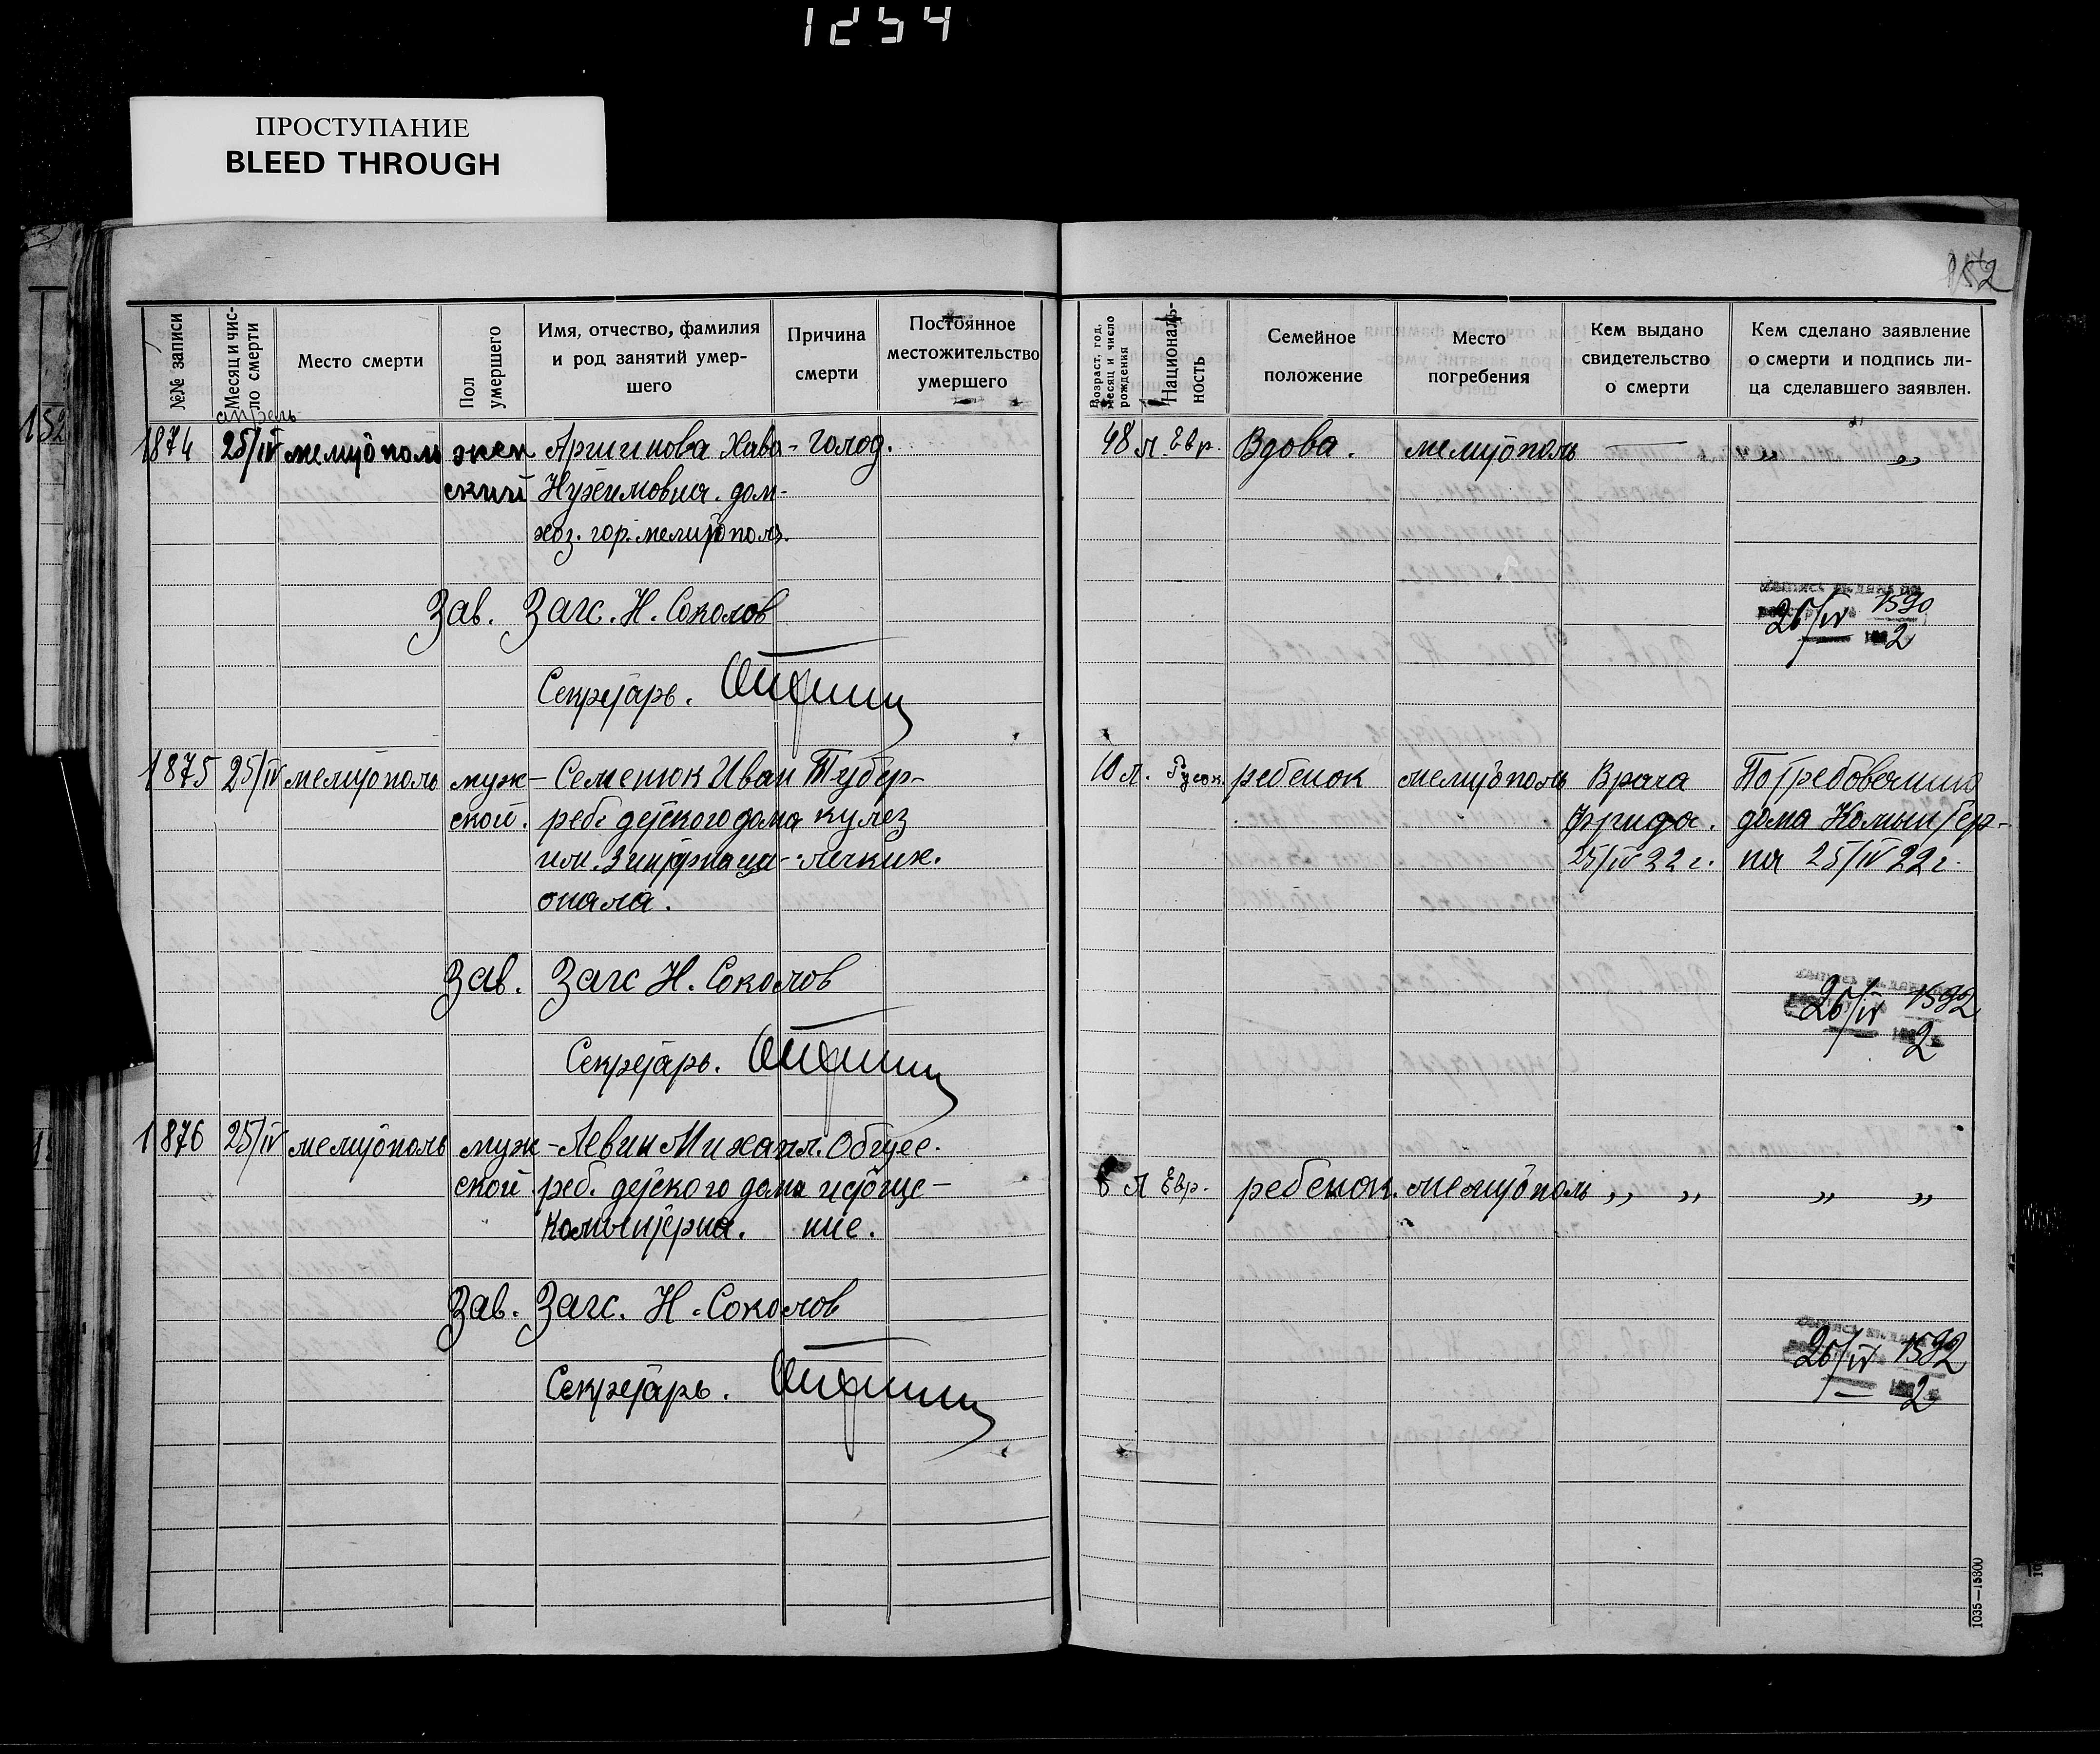 1254
ПРОСТУПАНИЕ
BLEED THROUGH
152
№№ записи
Месяц и чис-
ло смерти
Место смерти
Пол
умершего
Имя, отчество, фамилия
и род занятий умер-
шего
Причина
смерти
Постоянное
местожительство
умершего
Возраст, год,
месяц и число
рождения
Националь-
ность
Семейное
положение
Место
погребения
Кем выдано
свидетельство
о смерти
Кем сделано заявление
о смерти и подпись ли-
ца сделавшего заявлен.
152
апрель
1874 25/IV мелитополь жен Аргинова Хава - голод. 48 л Евр. Вдова. мелитополь — „ „
ский Нухимовна. дом-
хоз. гор. мелитополь.
Зав. Загс. Н. Соколов
26/IV 1590
2
Секретарь.
1875 25/IV мелитополь муж- Семенюк Иван Тубер- 10 л. Русск. ребенок мелитополь Врача По требованию
ской. реб. детского дома кулез Фрида. дома Коминтер-
им. 3 интернаци- легких. 25/IV 22 г. на 25/IV 22 г.
онала.
Зав. Загс Н. Соколов
26/IV 1592
2
Секретарь.
1876 25/IV мелитополь муж- Левин Михаил. Общее.
ской реб. детского дома истоще- 6 л Евр. ребенок. мелитополь „ „ „ „
Коминтерна. ние.
Зав. Загс. Н. Соколов
26/IV 1592
2
Секретарь.
1035—15800